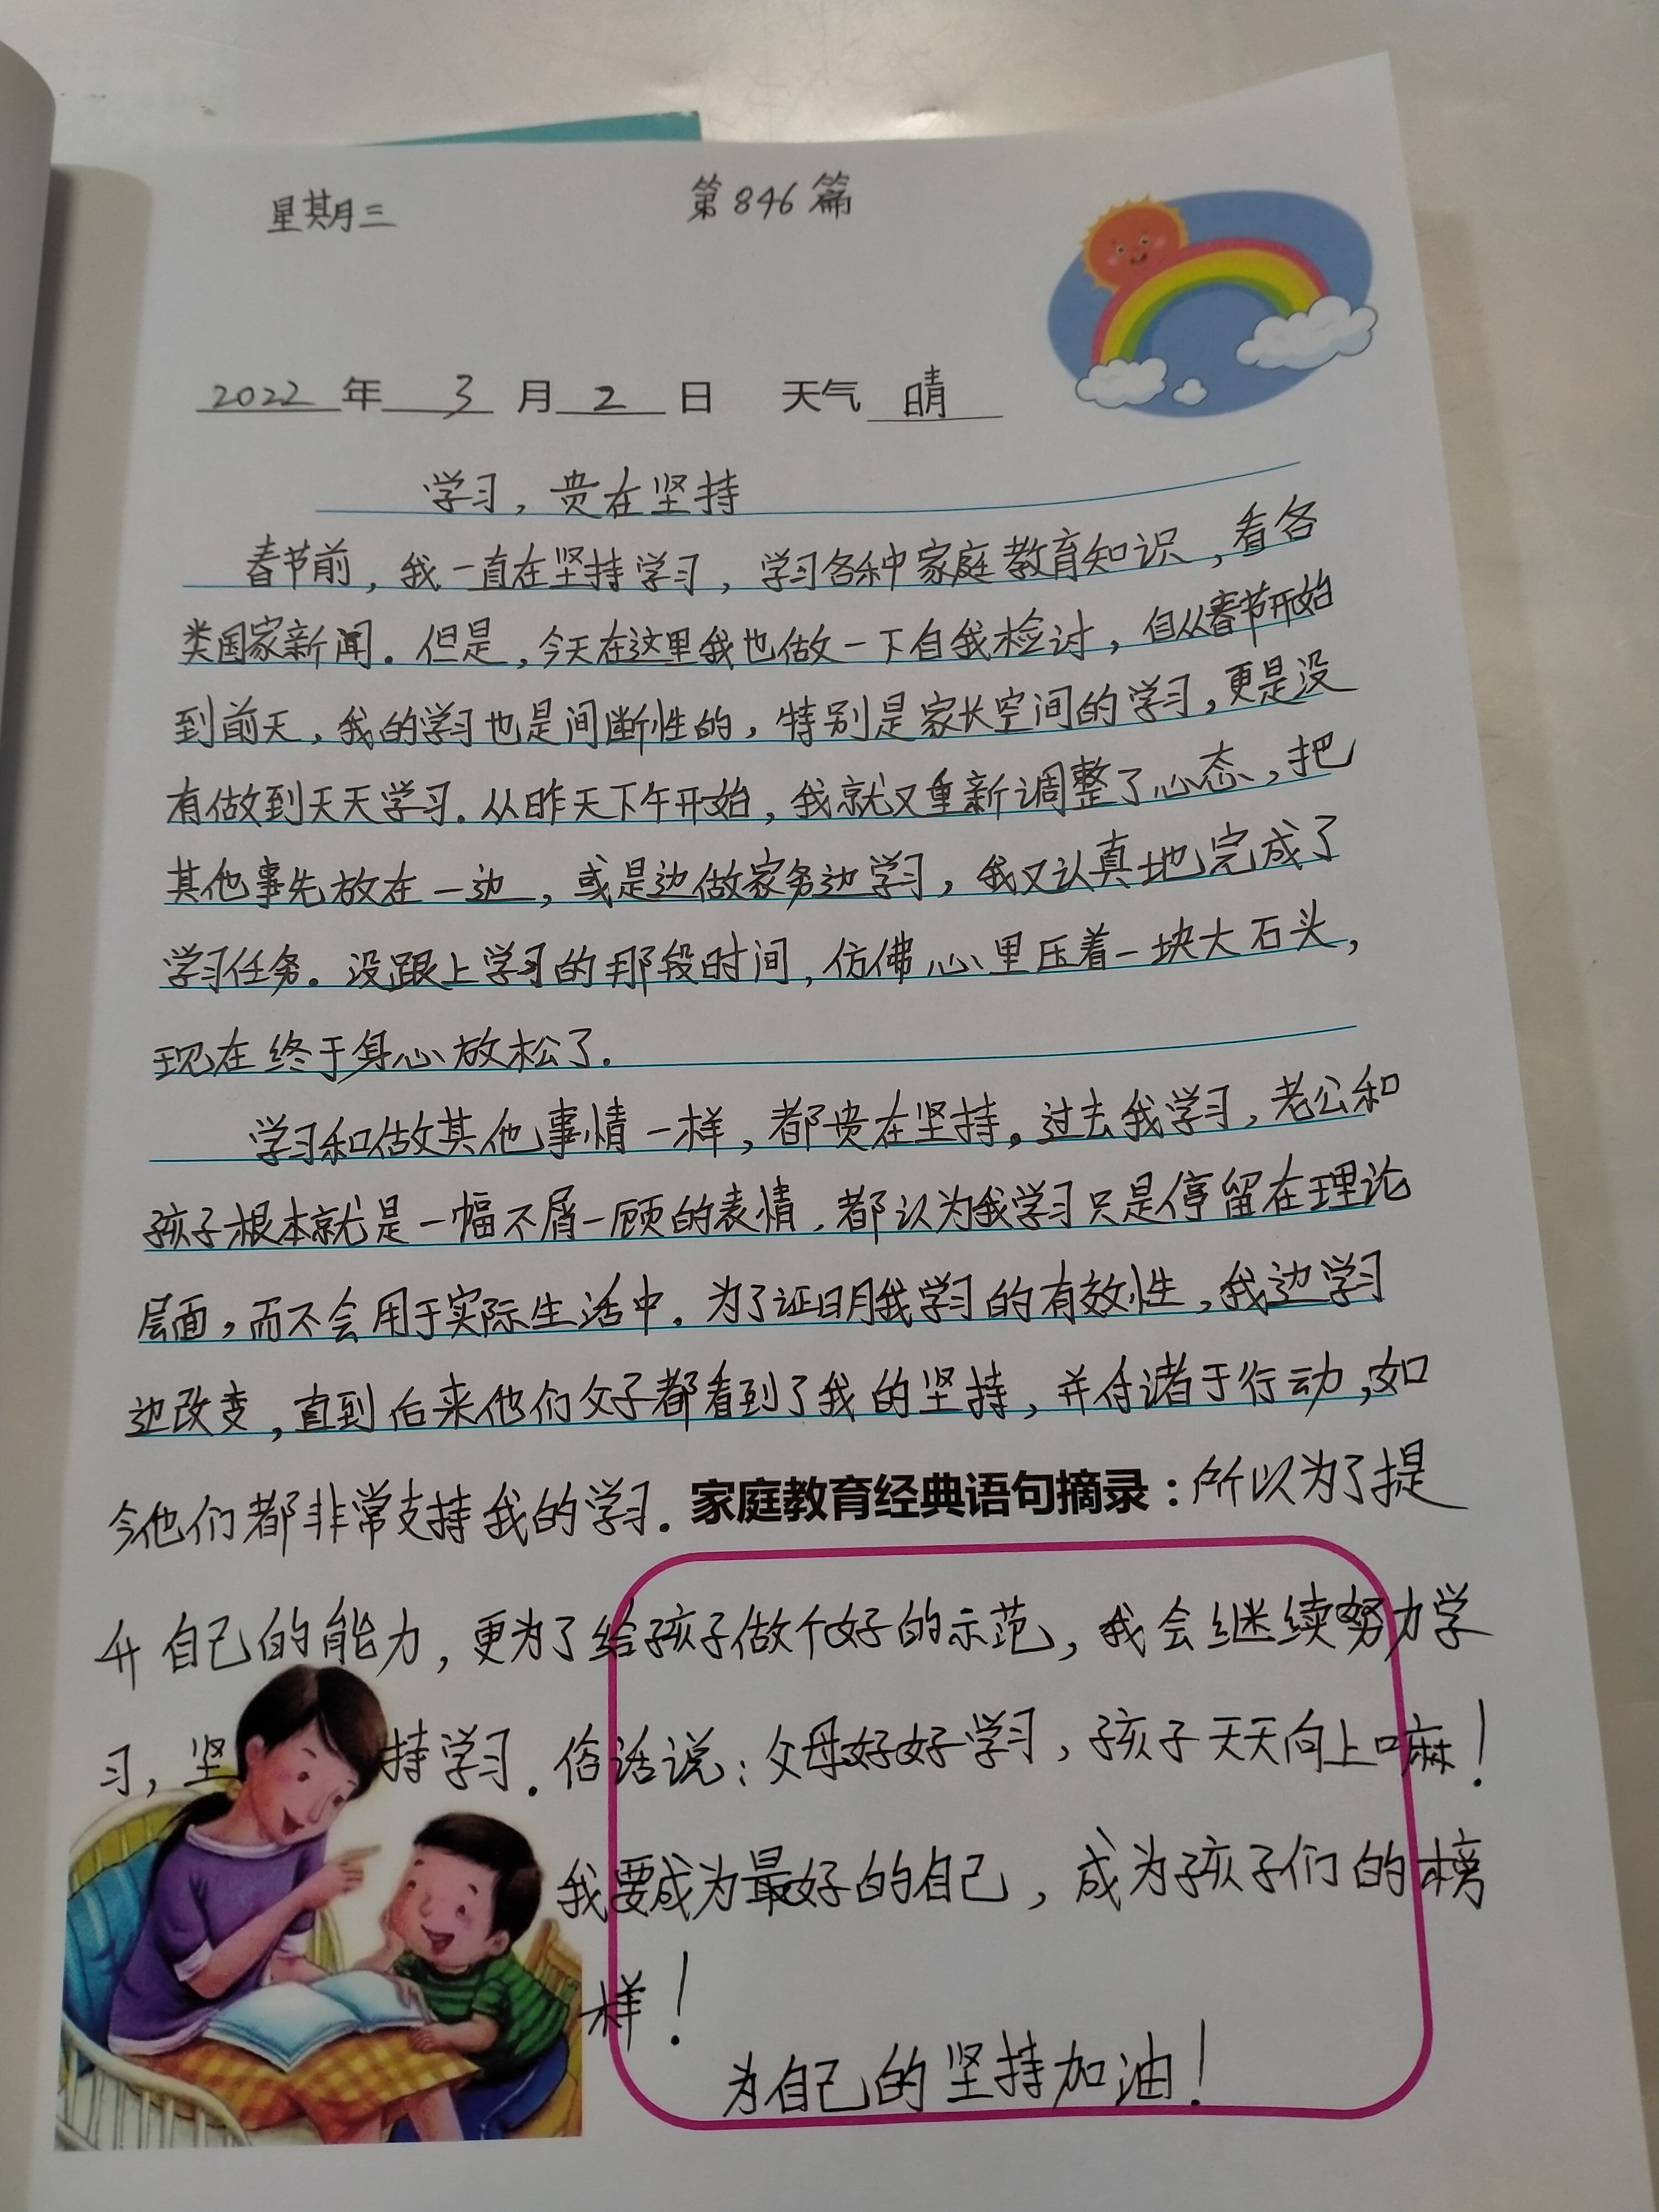 星期三 第846篇
2022年3月2日 天气 晴
学习，贵在坚持
春节前，我一直在坚持学习，学习各种家庭教育知识，看各
类国家新闻。但是，今天在这里我也做一下自我检讨，自从春节开始
到前天，我的学习也是间断性的，特别是家长空间的学习，更是没
有做到天天学习.从昨天下午开始，我就又重新调整了心态，把
其他事先放在一边，或是边做家务边学习，我又认真地完成了
学习任务。没跟上学习的那段时间，仿佛心里压着一块大石头，
现在终于身心放松了.
学习和做其他事情一样，都贵在坚持。过去我学习，老公和
孩子根本就是一幅不屑一顾的表情，都认为我学习只是停留在理论
层面，而不会用于实际生活中.为了证明我学习的有效性，我边学习
边改变，直到后来他们父子都看到了我的坚持，并付诸于行动，如
今他们都非常支持我的学习.家庭教育经典语句摘录：所以为了提
升自己的能力，更为了给孩子做个好的示范，我会继续努力学
习，坚持学习.俗话说：父母好好学习，孩子天天向上嘛！
我要成为最好的自己，成为孩子们的榜
样！
为自己的坚持加油！